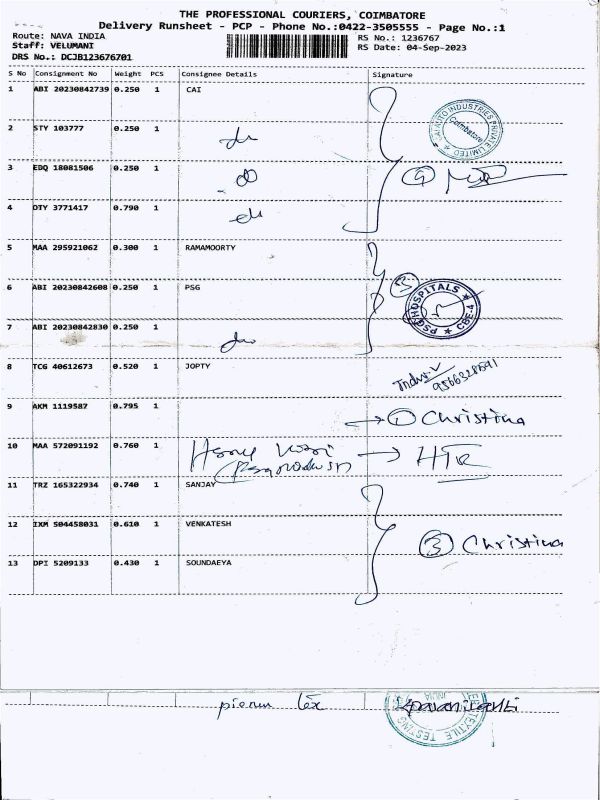 THE PROFESSIONAL COURIERS, COIMBATORE
Delivery Runsheet - PCP - Phone No.:0422-3505555 - Page No.:1
Route: NAVA INDIA RS No.: 1236767
Staff: VELUMANI RS Date: 04-Sep-2023
DRS No.: DCJB123676701
S No Consignment No Weight PCS Consignee Details Signature
1 ABI 20230842739 0.250 1 CAI
INDUSTRIES PRIVATE LIMITED
Coimbatore
2 STY 103777 0.250 1
3 EDQ 18081506 0.250 1 4
4 OTY 3771417 0.790 1
5 MAA 295921062 0.300 1 RAMAMOORTY
6 ABI 20230842608 0.250 1 PSG 3
PSG HOSPITALS CBE-4
7 ABI 20230842830 0.250 1
8 TCG 40612673 0.520 1 JOPTY
9 AKM 1119587 0.795 1 1 Christina
10 MAA 572091192 0.760 1
11 TRZ 165322934 0.740 1 SANJAY
12 IXM 504458031 0.610 1 VENKATESH
3 Christina
13 DPI 5209133 0.430 1 SOUNDAEYA
TEXTILE TESTING